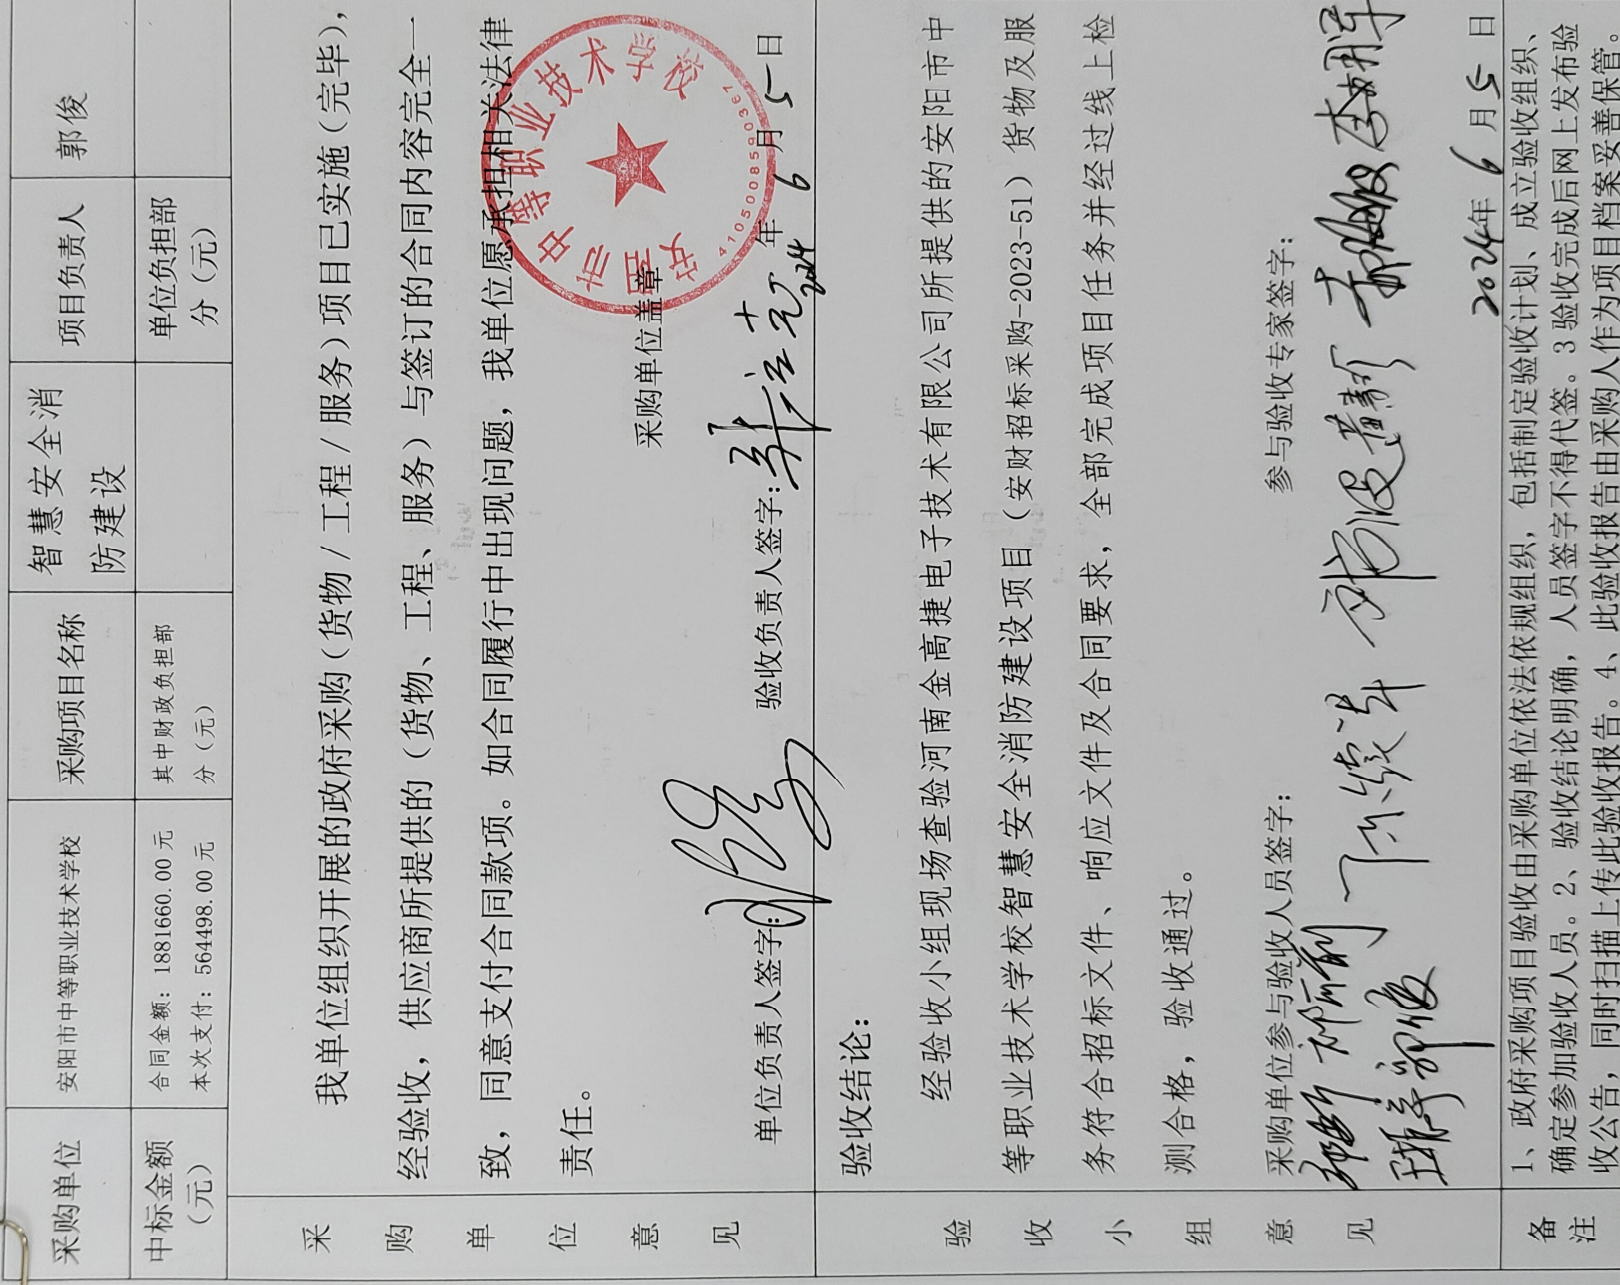 采购单位 安阳市中等职业技术学校 采购项目名称 智慧安全消防建设 项目负责人 郭俊
中标金额（元） 合同金额：1881660.00 元 本次支付：564498.00 元 其中财政负担部分（元） 单位负担部分（元）
采购单位意见
我单位组织开展的政府采购（货物/工程/服务）项目已实施（完毕），
经验收，供应商所提供的（货物、工程、服务）与签订的合同内容完全一
致，同意支付合同款项。如合同履行中出现问题，我单位愿承担相关法律
责任。
采购单位盖章
安阳市中等职业技术学校
4105008590367
单位负责人签字： 验收负责人签字：
2024年6月5日
验收小组意见
验收结论：
经验收小组现场查验河南金高捷电子技术有限公司所提供的安阳市中
等职业技术学校智慧安全消防建设项目（安财招标采购-2023-51）货物及服
务符合招标文件、响应文件及合同要求，全部完成项目任务并经过线上检
测合格，验收通过。
采购单位参与验收人员签字： 参与验收专家签字：
郭俊
2024年6月5日
备注
1、政府采购项目验收由采购单位依法依规组织，包括制定验收计划、成立验收组织、
确定参加验收人员。2、验收结论明确，人员签字不得代签。3 验收完成后网上发布验
收公告，同时扫描上传此验收报告。4、此验收报告由采购人作为项目档案妥善保管。